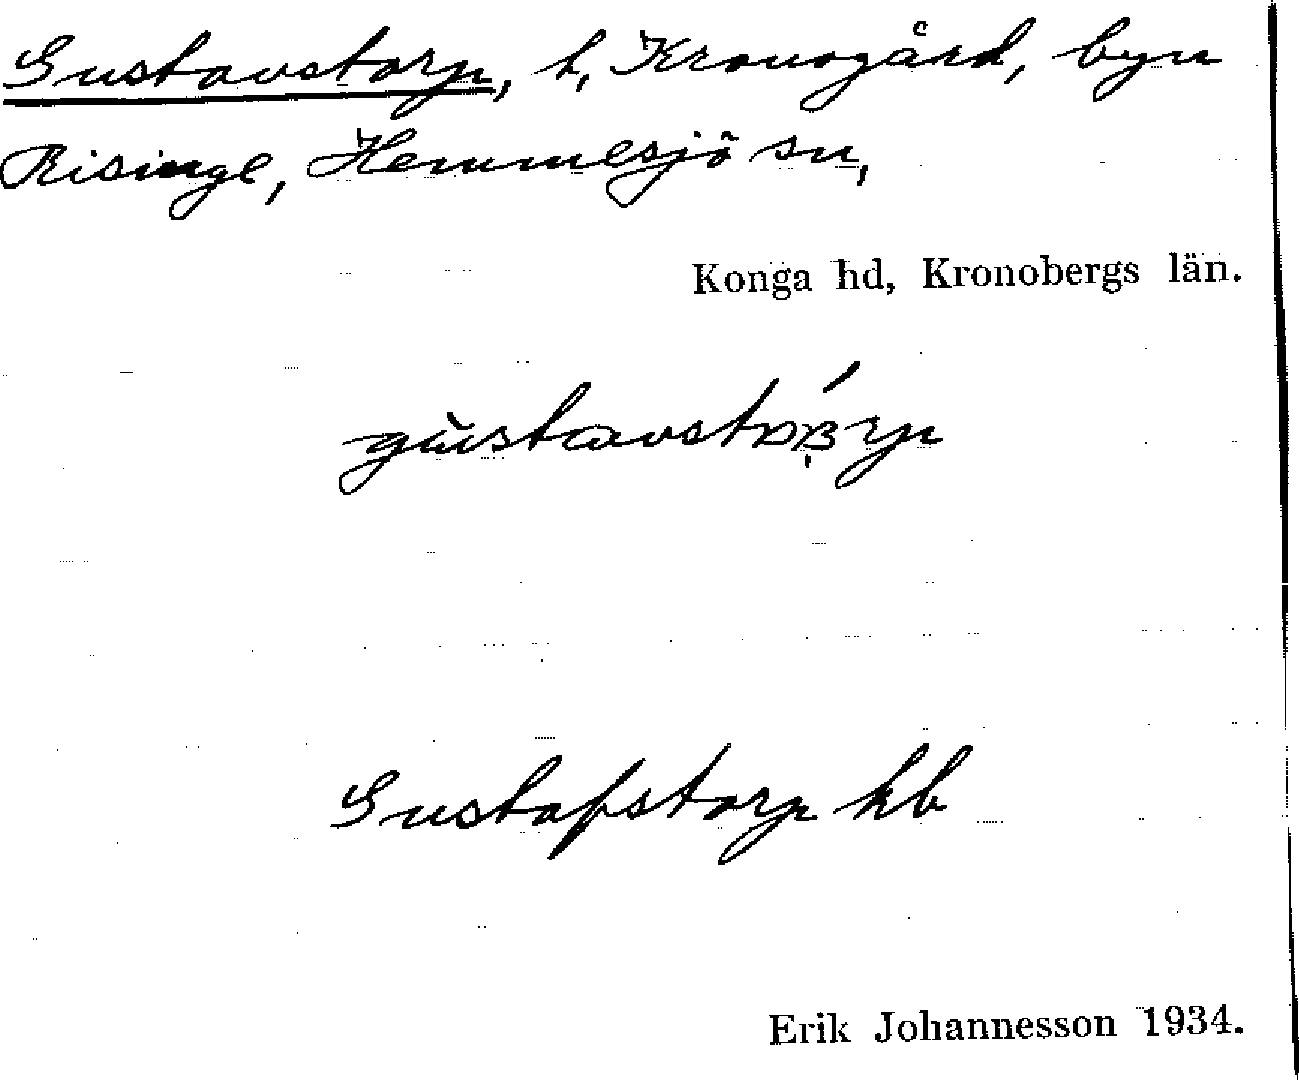 Gustavstorp, t, Kronogård, byn
Risinge, Hemmesjö sn,
Konga hd, Kronobergs län.
Gustafstorp kb
Erik Johannesson 1934.